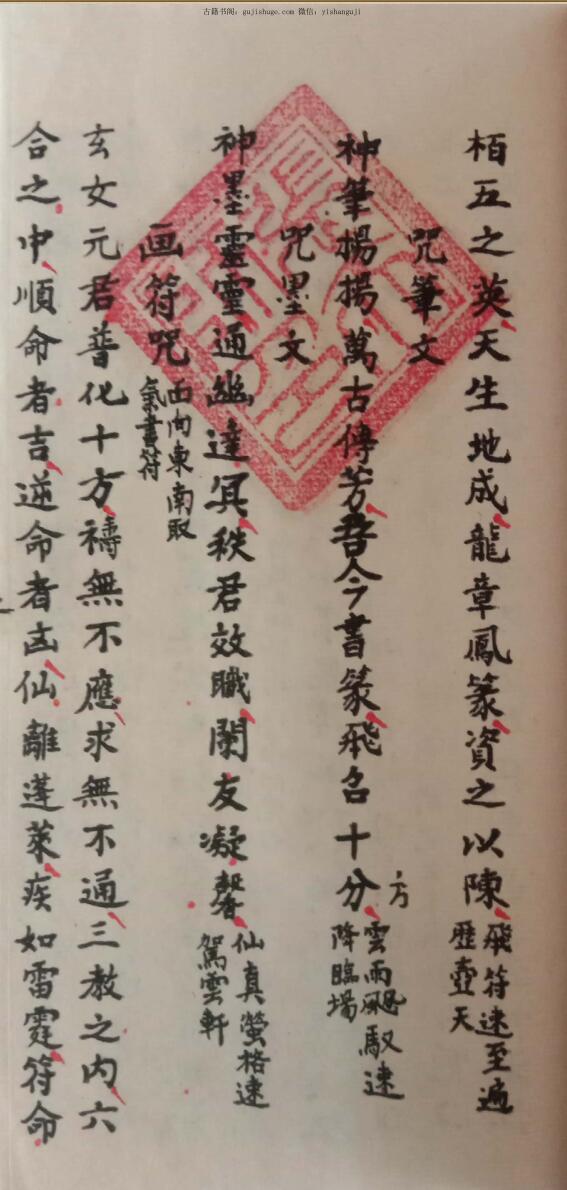 古籍书阁：gujishuge.com 微信：yishanguji
栢五之英天生地成龍章鳳篆資之以陳飛符速至遍歷壺天
咒筆文
神筆揚揚萬古傳芳吾今書篆飛召十分方雲雨飚馭速降臨場
咒墨文
神墨靈靈通幽達冥秩君效職蘭友凝馨仙真螢格速駕雲軒
画符咒面向東南取氣書符
玄女元君普化十方禱無不應求無不通三教之内六
合之中順命者吉逆命者凶仙離蓬萊疾如雷霆符命